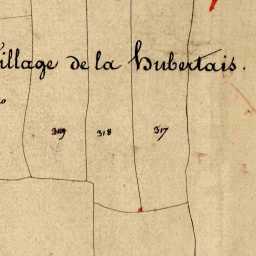 illage de la hubertais.
319 318 317